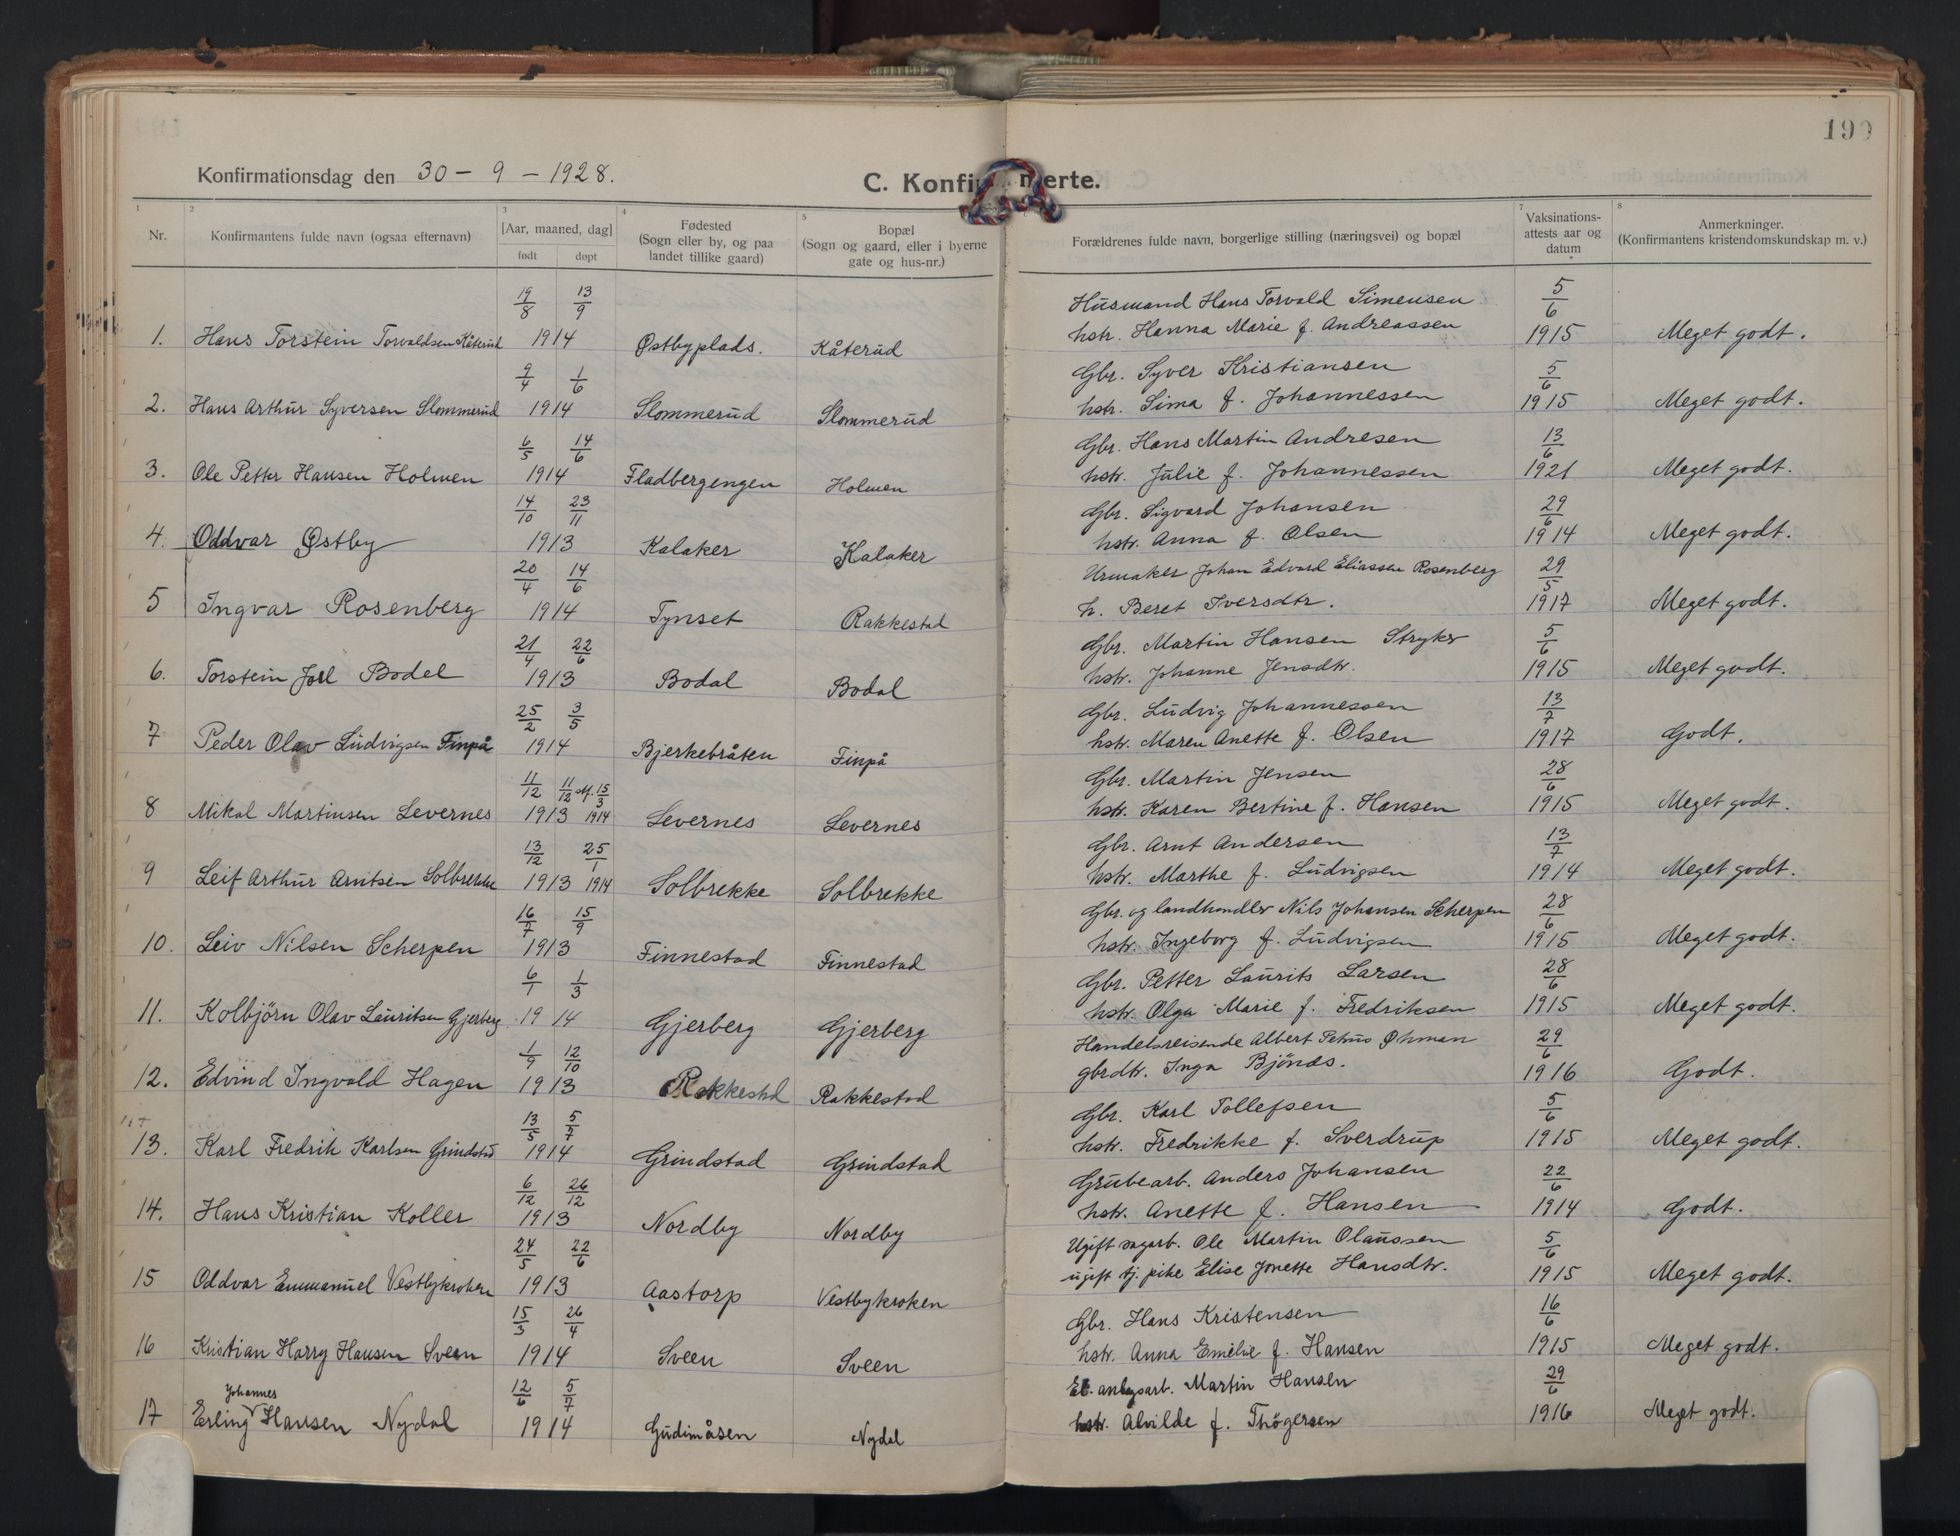 190
Konfirmationsdag den 30 - 9 - 1928.
C. Konfirmerte.
1 2 3 4 5 7 8
Nr. Konfirmantens fulde navn (ogsaa efternavn) [Aar, maaned, dag] født døpt Fødested (Sogn eller by, og paa landet tillike gaard) Bopæl (Sogn og gaard, eller i byerne gate og hus-nr.) Forældrenes fulde navn, borgerlige stilling (næringsvei) og bopæl Vaksinations-attests aar og datum Anmerkninger. (Konfirmantens kristendomskundskap m. v.)
19/8 13/9 Husmand Hans Torvald Simensen 5/6
1. Hans Torstein Torvaldsen Kåterud 1914 Østbyplads. Kåterud hstr. Hanna Marie f. Andreassen 1915 Meget godt.
9/4 1/6 Gbr. Syver Kristiansen 5/6
2. Hans Arthur Syversen Slommerud 1914 Slommerud Slommerud hstr. Sima f. Johannessen 1915 Meget godt.
6/5 14/6 Gbr. Hans Martin Andresen 13/6
3. Ole Petter Hansen Holmen 1914 Fladbergengen Holmen hstr. Julie f. Johannessen 1921 Meget godt.
14/10 23/11 Gbr. Sigvard Johansen 29/6
4. Oddvar Østby 1913 Kalaker Kalaker hstr. Anna f. Olsen 1914 Meget godt.
20/4 14/6 Urmaker Johan Edvard Eliassen Rosenberg 29/5
5 Ingvar Rosenberg 1914 Tynset Rakkestad h. Beret Iversdtr. 1917 Meget godt.
21/4 22/6 Gbr. Martin Hansen Stryker 5/6
6. Torstein Joel Bodel 1913 Bodal Bodal hstr. Johanne Jensdtr. 1915 Meget godt.
25/2 3/5 Gbr. Ludvig Johannessen 13/7
7 Peder Olav Ludvigsen Finpå 1914 Bjerkebråten Finpå hstr. Maren Anette f. Olsen 1917 Godt.
11/12 11/12 M. 15/3 Gbr. Martin Jensen 28/6
8 Mikal Martinsen Levernes 1913 1914 Levernes Levernes hstr. Karen Bertine f. Hansen 1915 Meget godt.
13/12 25/1 Gbr. Arnt Andersen 13/7
9 Leif Arthur Arntsen Solbrekke 1913 1914 Solbrekke Solbrekke hstr. Marthe f. Ludvigsen 1914 Meget godt.
16/7 15/9 Gbr. og landhandler Nils Johansen Scherpen 28/6
10. Leiv Nilsen Scherpen 1913 Finnestad Finnestad hstr. Ingeborg f. Ludvigsen 1915 Meget godt.
6/1 1/3 Gbr. Petter Laurits Larsen 28/6
11. Kolbjörn Olav Lauritsen Gjerberg. 1914 Gjerberg Gjerberg hstr. Olga Marie f. Fredriksen 1915 Meget godt.
1/9 12/10 Handelsreisende Albert Petrus Øhman 29/6
12. Edvind Ingvald Hagen 1913 Rakkestad Rakkestad gbrdtr. Inga Bjönes. 1916 Godt.
13/5 5/7 Gbr. Karl Tollefsen 5/6
13. Karl Fredrik Karlsen Grindstad 1914 Grindstad Grindstad hstr. Fredrikke f. Sverdrup 1915 Meget godt.
6/12 26/12 Grubearb. Anders Johansen 22/6
14. Hans Kristian Koller 1913 Nordby Nordby hstr. Anette f. Hansen 1914 Godt.
24/5 22/6 Ugift sagarb. Ole Martin Olaussen 5/6
15 Oddvar Emmanuel Vestbykroken 1913 Aastorp Vestbykroken ugift tj. pike Elise Jonette Hansdtr. 1915 Meget godt.
15/3 26/4 Gbr. Hans Kristensen 16/6
16 Kristian Harry Hansen Sveen 1914 Sveen Sveen hstr. Anna Emelie f. Hansen 1915 Meget godt.
Johannes 12/6 5/7 El. anlegsarb. Martin Hansen 29/6
17 Erling Hansen Nydal 1914 Gudimåsen Nydal hstr. Alvilde f. Thögersen 1916 Meget godt.